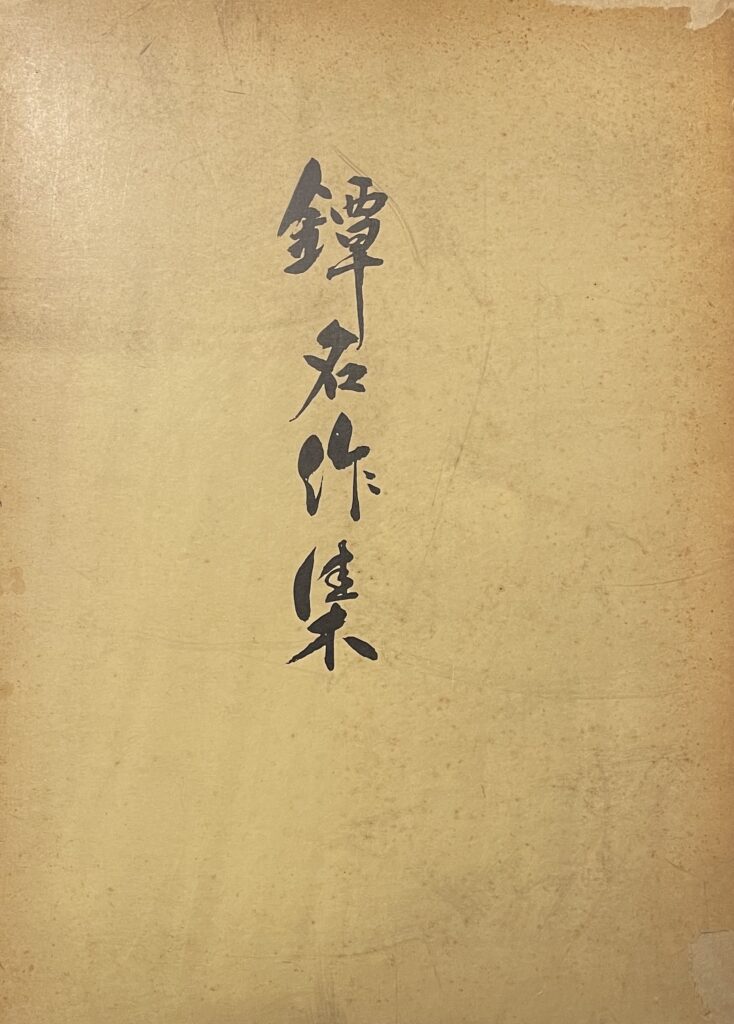 鐔名作集